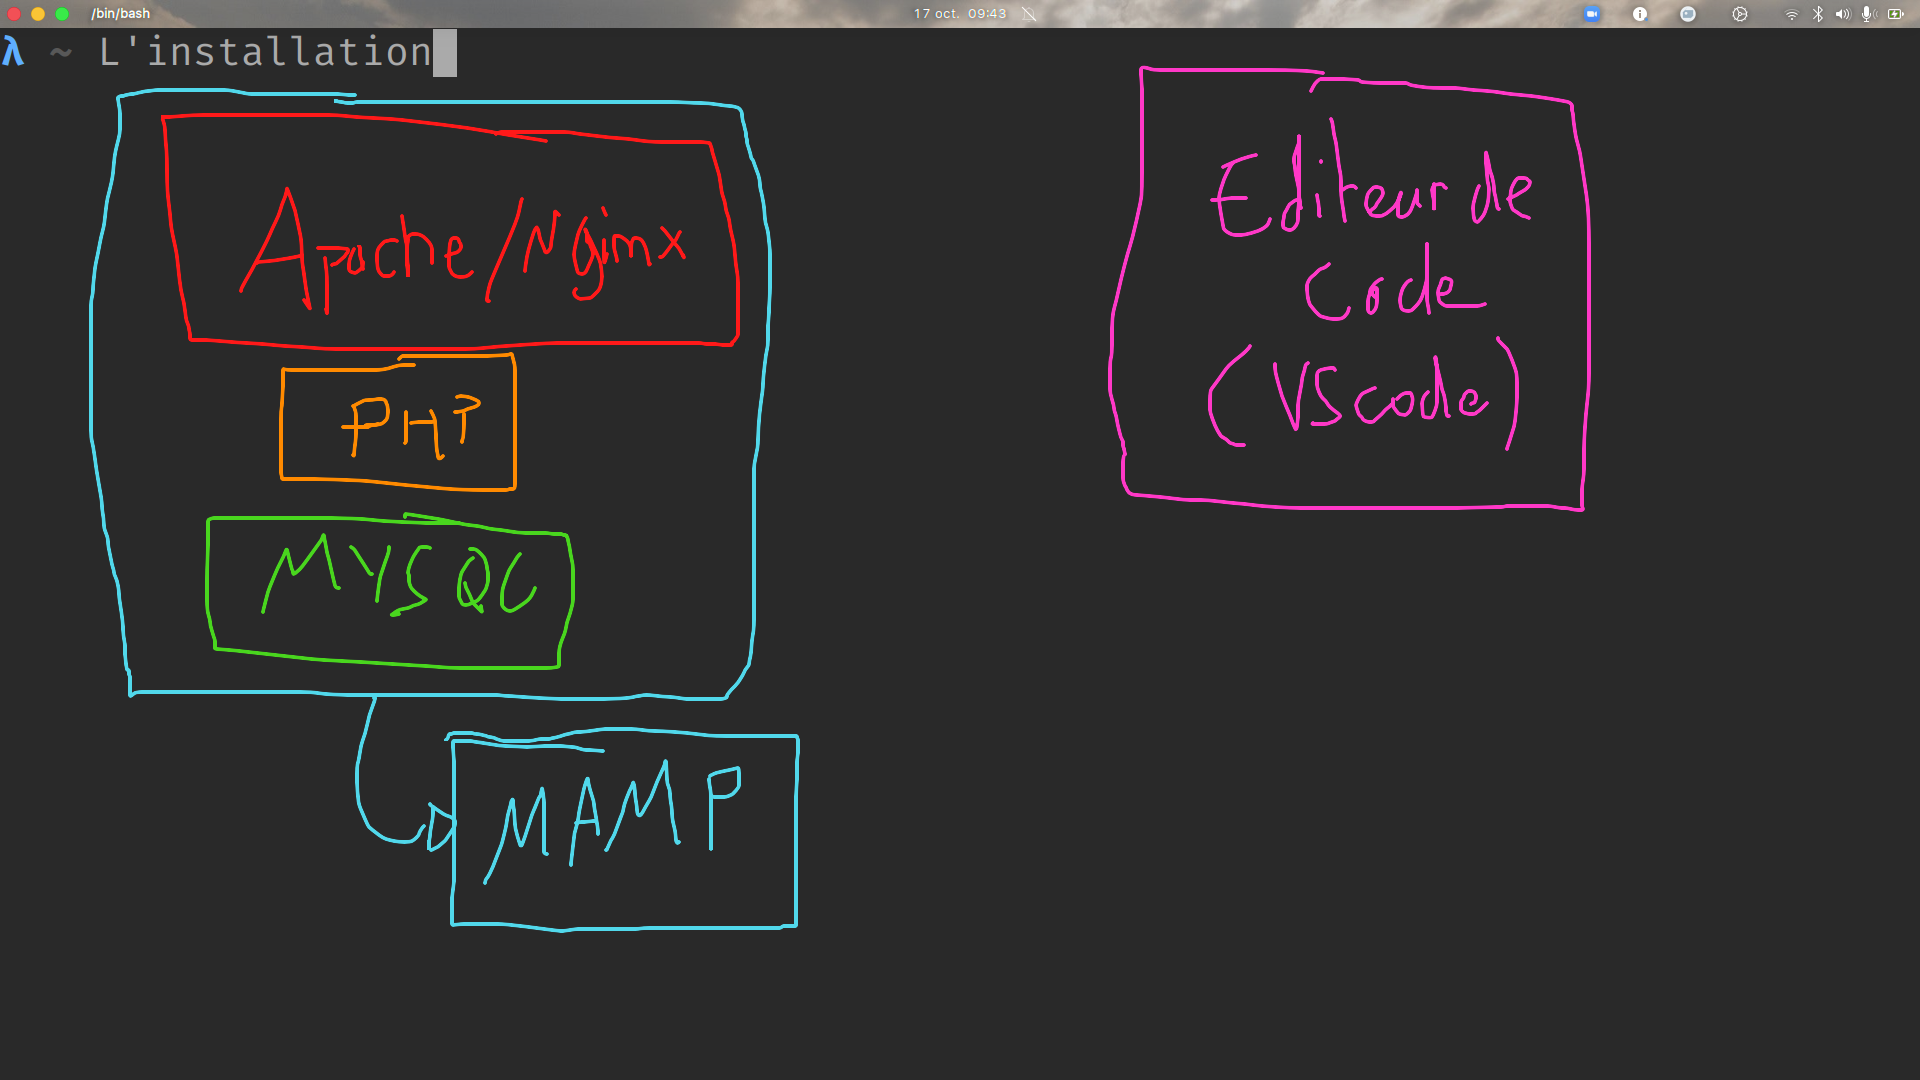 /bin/bash
17 oct. 09:43
λ ~ L'installation
Apache/Nginx
PHP
MYSQL
MAMP
Editeur de
Code
(VScode)